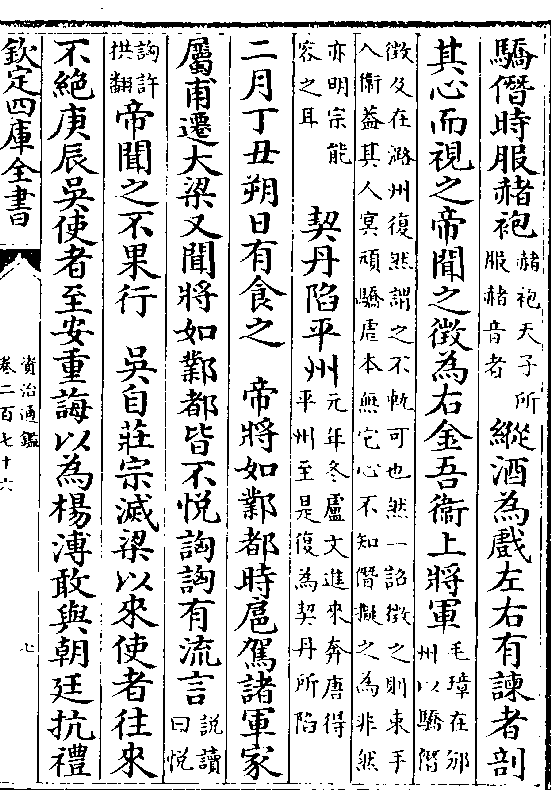 驕僭時服赭袍赭袍天子所服赭音者縱酒為戲左右有諫者剖
其心而視之帝聞之徵為右金吾衞上將軍毛璋在邠州以驕僭
徵及在潞州復然謂之不軌可也然一詔徵之則束手入衛葢其人冥頑驕虐本無它心不知僭擬之為非然
亦明宗能容之耳 契丹陷平州元年冬盧文進來奔唐得平州至是復為契丹所陷
二月丁丑朔日有食之 帝將如鄴都時扈駕諸軍家
屬甫遷大梁又聞將如鄴都皆不悦詾詾有流言説讀曰悦
詾許拱翻帝聞之不果行 吳自莊宗滅梁以來使者往來
不絶庚辰吳使者至安重誨以為楊溥敢與朝廷抗禮
欽定四庫全書
資治通鑑
卷二百七十六
七